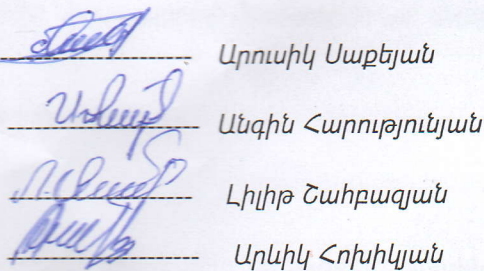 Արուսիկ Սաքեյան
Անգին Հարությունյան
Լիլիթ Շահբազյան
Արևիկ Հոխիկյան